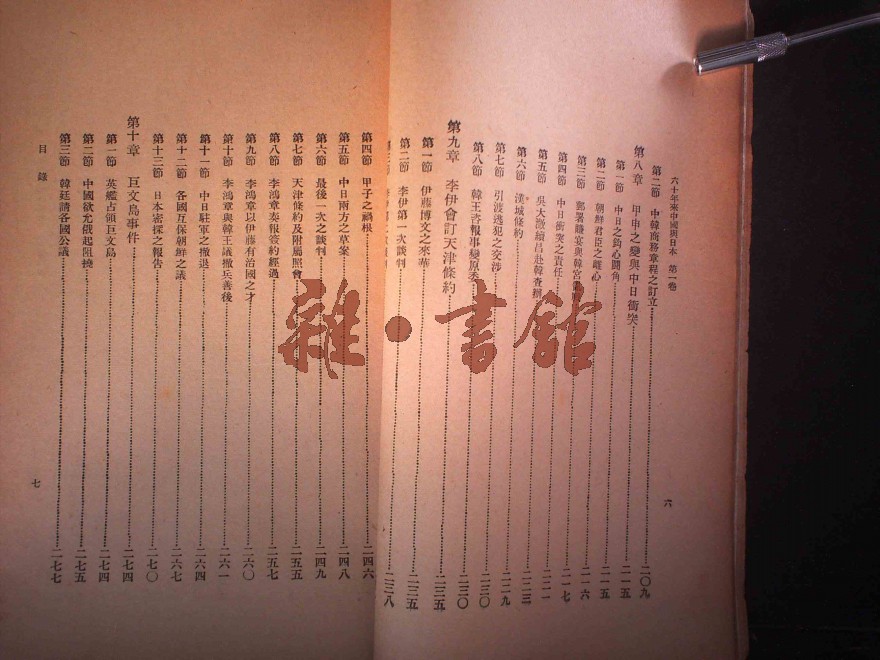 六十年來中國與日本 第一卷
第二節 中韓商務章程之訂立 二〇九
第八章 甲申之變與中日衝突 二一五
第一節 中日之鈎心鬬角 二一五
第二節 朝鮮君臣之離心 二一五
第三節 郵署賺宴與韓宮 二一六
第四節 中日衝突之責任 二一七
第五節 吳大澂續昌赴韓查辦 二二一
第六節 漢城條約 二二三
第七節 引渡逃犯之交涉 二二九
第八節 韓王咨報事變原委 二三〇
第九章 李伊會訂天津條約 二三五
第一節 伊藤博文之來華 二三五
第二節 李伊第一次談判 二三五
二三八
六
第四節 甲子之禍根 二四六
第五節 中日兩方之草案 二四八
第六節 最後一次之談判 二四九
第七節 天津條約及附屬照會 二五五
第八節 李鴻章奏報簽約經過 二五七
第九節 李鴻章以伊藤有治國之才 二六〇
第十節 李鴻章與韓王議撤兵善後 二六一
第十一節 中日駐軍之撤退 二六四
第十二節 各國互保朝鮮之議 二六七
第十三節 日本密探之報告 二七〇
第十章 巨文島事件 二七四
第一節 英艦占領巨文島 二七四
第二節 中國欲允俄起阻撓 二七五
第三節 韓廷請各國公議 二七七
目錄
七
雜·書館